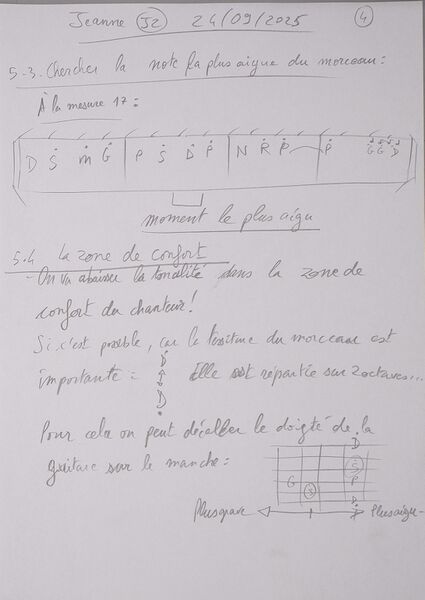 Jeanne J2 24/09/2025 4
5.3. Chercher la note la plus aigue du morceau:
À la mesure 17:
D S m G P S D P N R P P G G D
moment le plus aigu
5.4 la zone de confort
- On va abaisser la tonalité dans la zone de
confort du chanteur!
Si c'est possible, car la tessiture du morceau est
importante: D Elle est répartie sur 2 octaves...
D
Pour cela on peut décaler le doigté de la
guitare sur le manche:
D
S
G P
Plus grave Plus aigu